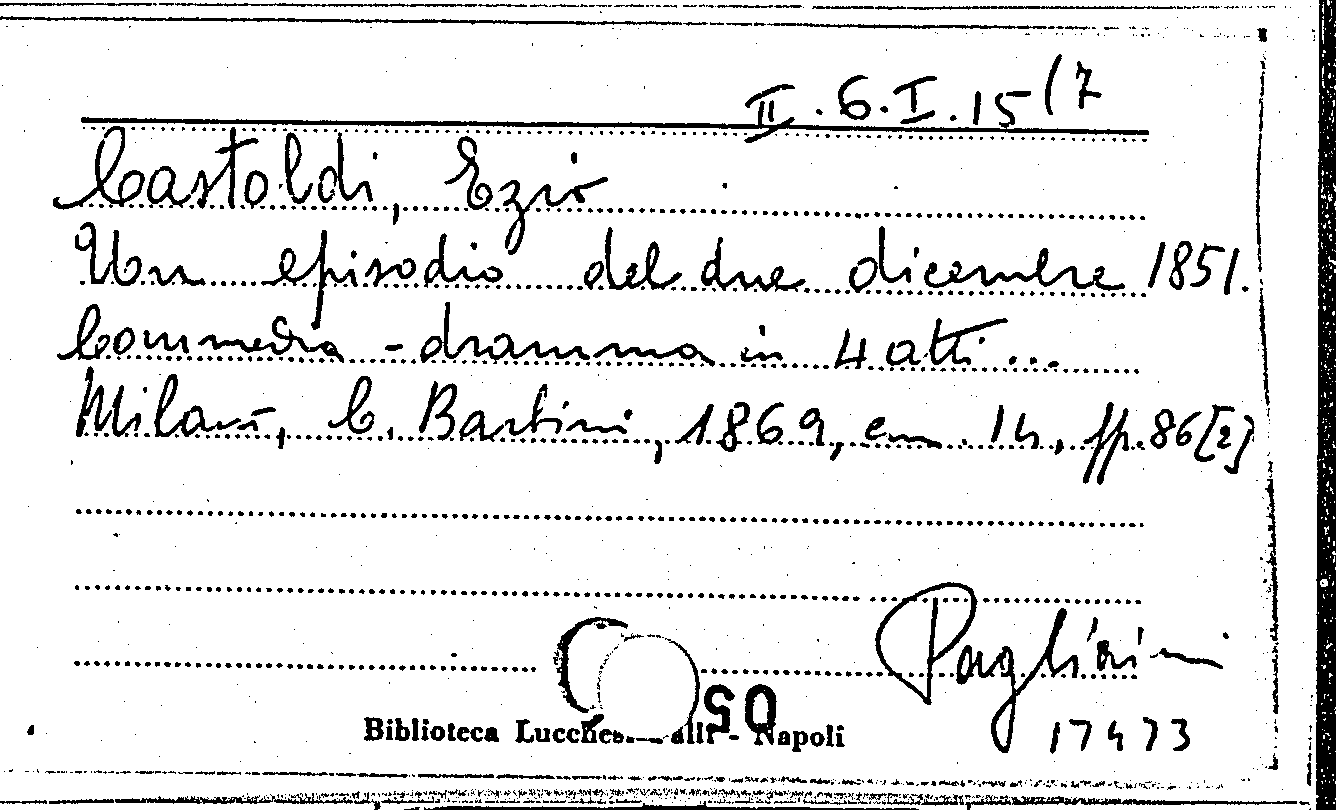 II.6.I.15(7
Castoldi, Ezio
Un episodio del due dicembre 1851.
Commedia-dramma in 4 atti...
Milano, C. Barbini, 1869, cm. 14, pp.86[2]
05
Biblioteca Lucchesi Palli - Napoli
17473